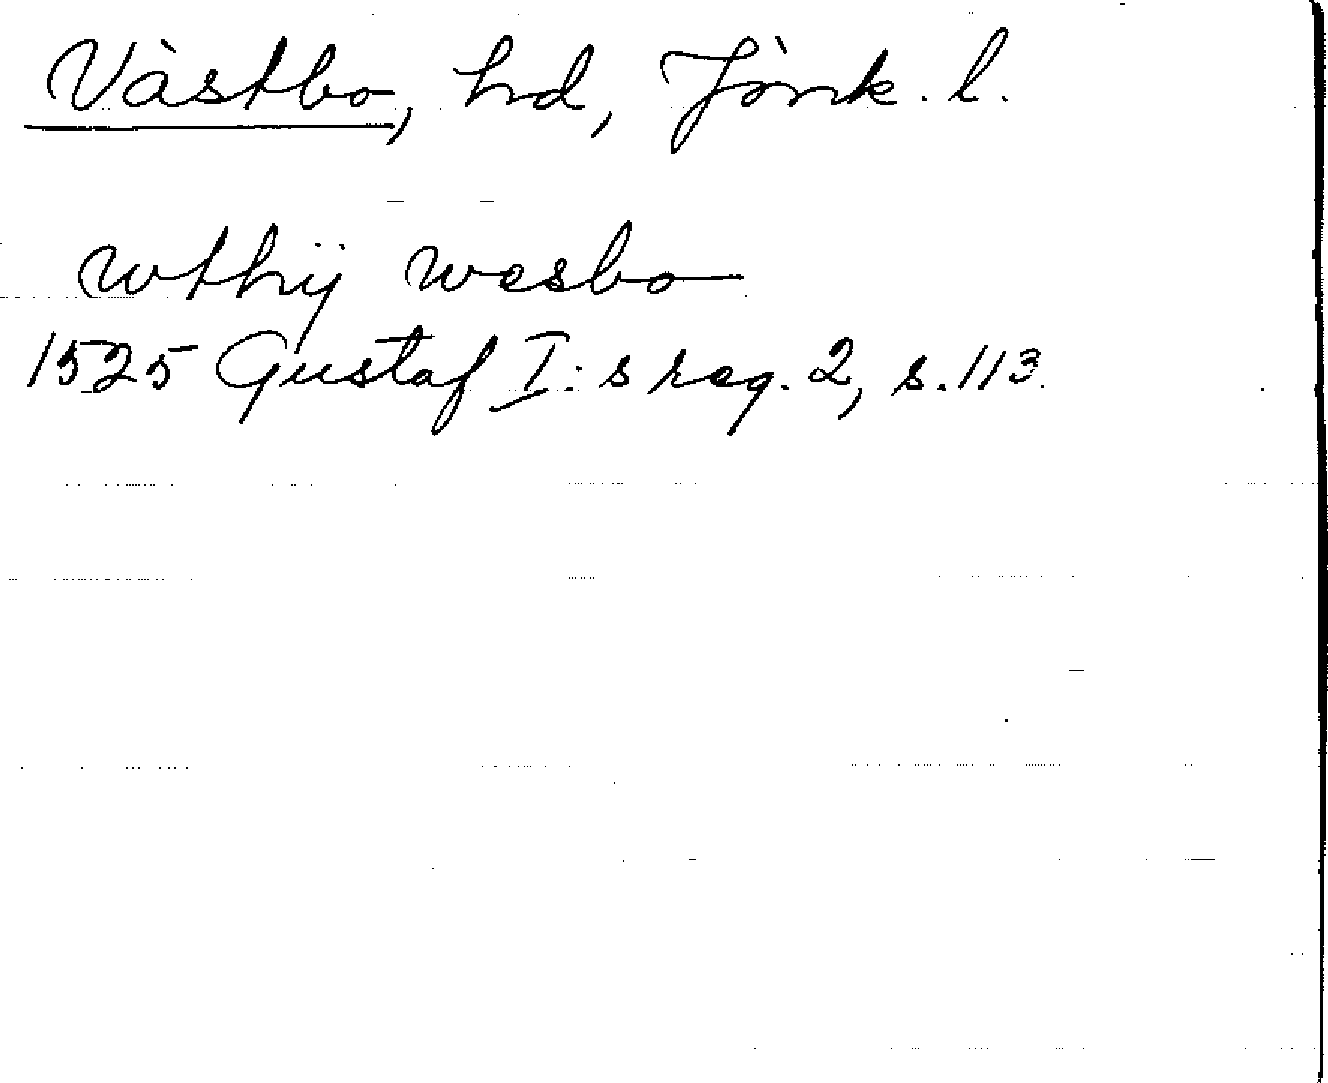 Västbo, hd, Jönk. l.
wthij wesbo
1525 Gustaf I:s reg. 2, s. 113.